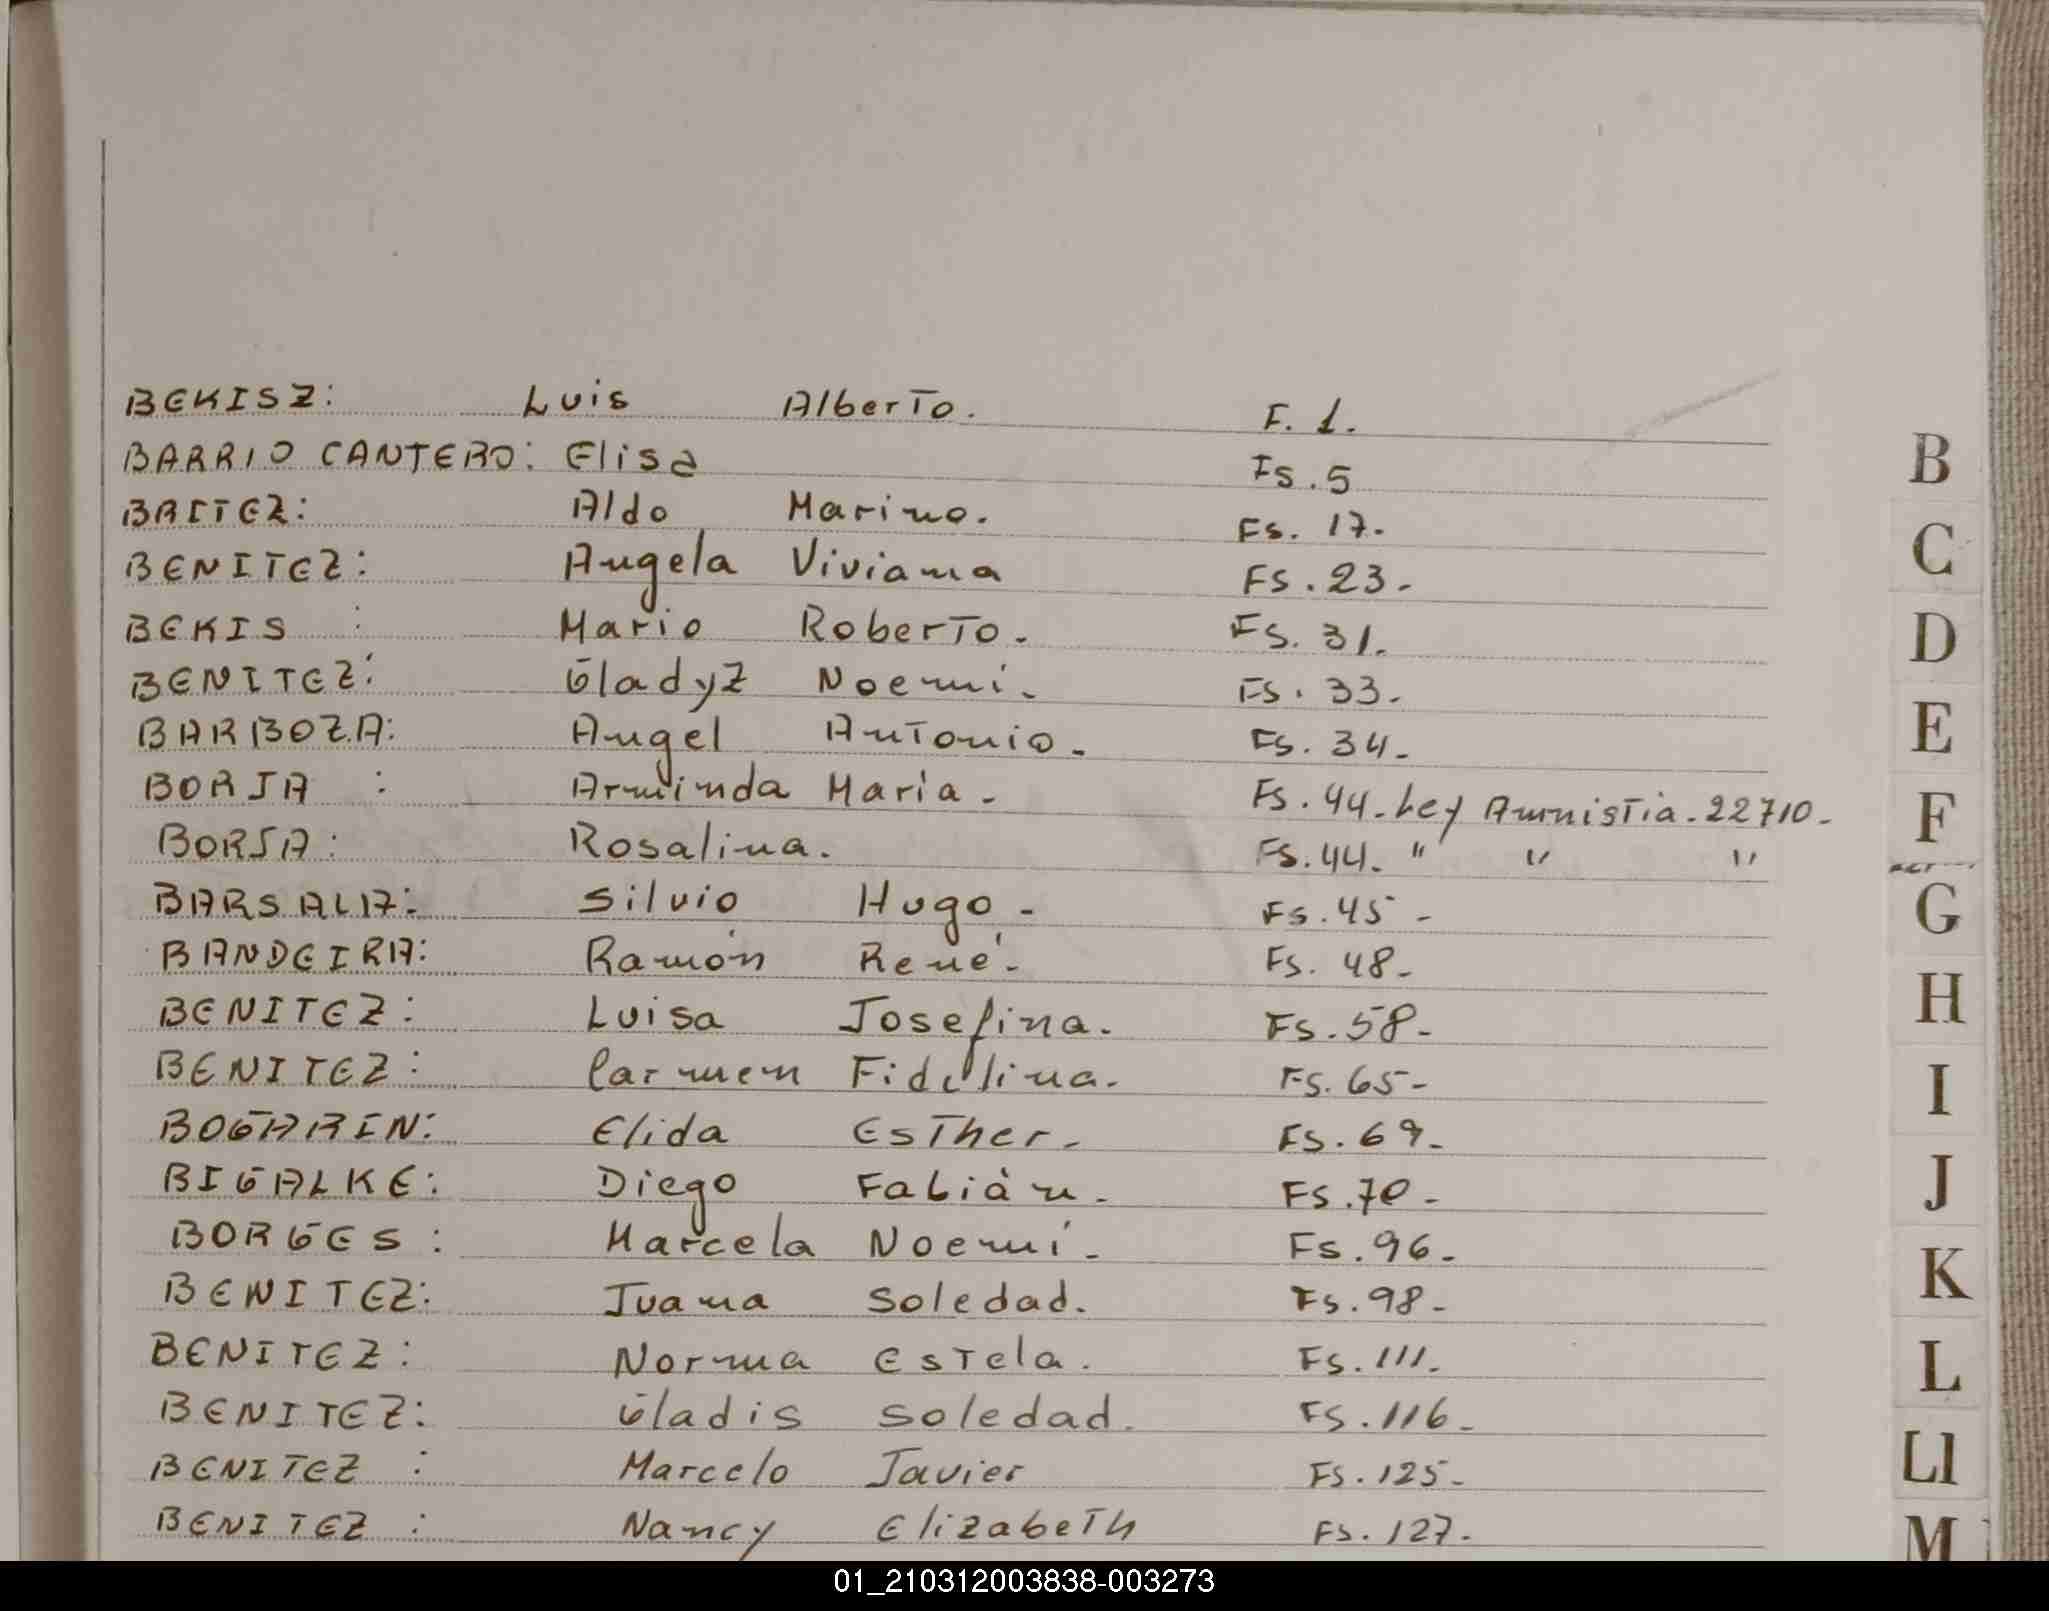 BEKISZ: Luis Alberto. F. 1.
BARRIO CANTERO: Elisa Fs. 5
BRITEZ: Aldo Marino. Fs. 17.
BENITEZ: Angela Viviana Fs. 23-
BEKIS : Mario Roberto. Fs. 31.
BENITEZ: Gladyz Noemí. Fs. 33.
BARBOZA: Angel Antonio. Fs. 34-
BORJA : Arminda María- Fs. 44-Ley Amnistia-22710-
BORJA: Rosalina. Fs. 44. " " "
BARSALIA: Silvio Hugo- Fs. 45-
BANDEIRA: Ramón René- Fs. 48-
BENITEZ: Luisa Josefina. Fs. 58-
BENITEZ: Carmen Fidelina. Fs. 65-
BOGARIN: Elida Esther- Fs. 69-
BIGALKE: Diego Fabián. Fs. 70-
BORGES : Marcela Noemí- Fs. 96-
BENITEZ: Juana Soledad. Fs. 98-
BENITEZ: Norma Estela. Fs. 111.
BENITEZ: Gladis Soledad. Fs. 116-
BENITEZ : Marcelo Javier Fs. 125-
BENITEZ : Nancy Elizabeth Fs. 127-
B
C
D
E
F
G
H
I
J
K
L
Ll
M
01_210312003838-003273